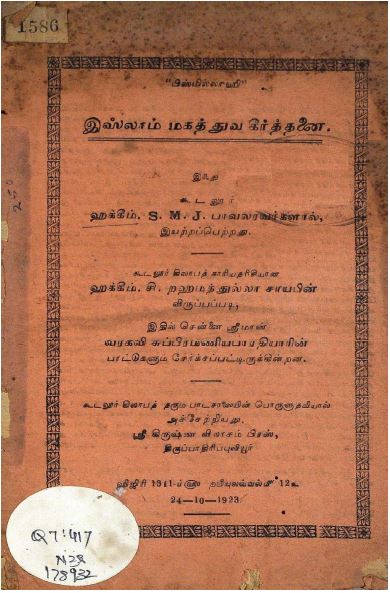 1586
"பிஸ்மில்லாஹி"
இஸ்லாம் மகத்துவ கீர்த்தனை.
இஃது
கூடலூர்
ஹக்கீம். S. M. J. பாவலரவர்களால்,
இயற்றப்பெற்றது.
கூடலூர் கிலாபத் காரியதரிசியான
ஹக்கீம். சி. றஹமத்துல்லா சாயபின்
விருப்பப்படி,
இதில் சென்னை ஸ்ரீமான்
வரகவி சுப்பிரமணியபாரதியாரின்
பாட்டுகளும் சேர்க்கப்பட்டிருக்கின்றன.
கூடலூர் கிலாபத் தரும பாடசாலையின் பொருளுதவியால்
அச்சேற்றியது.
ஸ்ரீ கிருஷ்ண விலாசம் பிரஸ்,
திருப்பாதிரிப்புலியூர்
ஹிஜிரி 1341-ம்௵ றபியுலவ்வல்௴ 12௳
24-10-1923
Q7:417
N23
178932